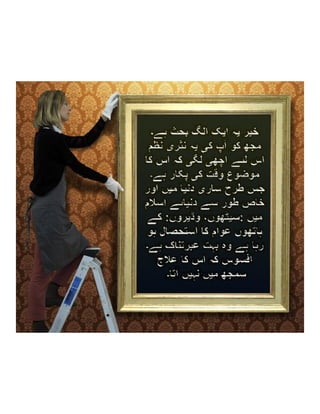 خیر یہ ایک الگ بحث ہے۔
مجھ کو آپ کی یہ نثری نظم
اس لئے اچھی لگی کہ اس کا
موضوع وقت کی پکار ہے۔
جس طرح ساری دنیا میں اور
خاص طور سے دنیائے اسلام
میں :سیٹھوں، وڈیروں: کے
ہاتھوں عوام کا استحصال ہو
رہا ہے وہ بہت عبرتناک ہے۔
افسوس کہ اس کا علاج
سمجھ میں نہیں آتا۔